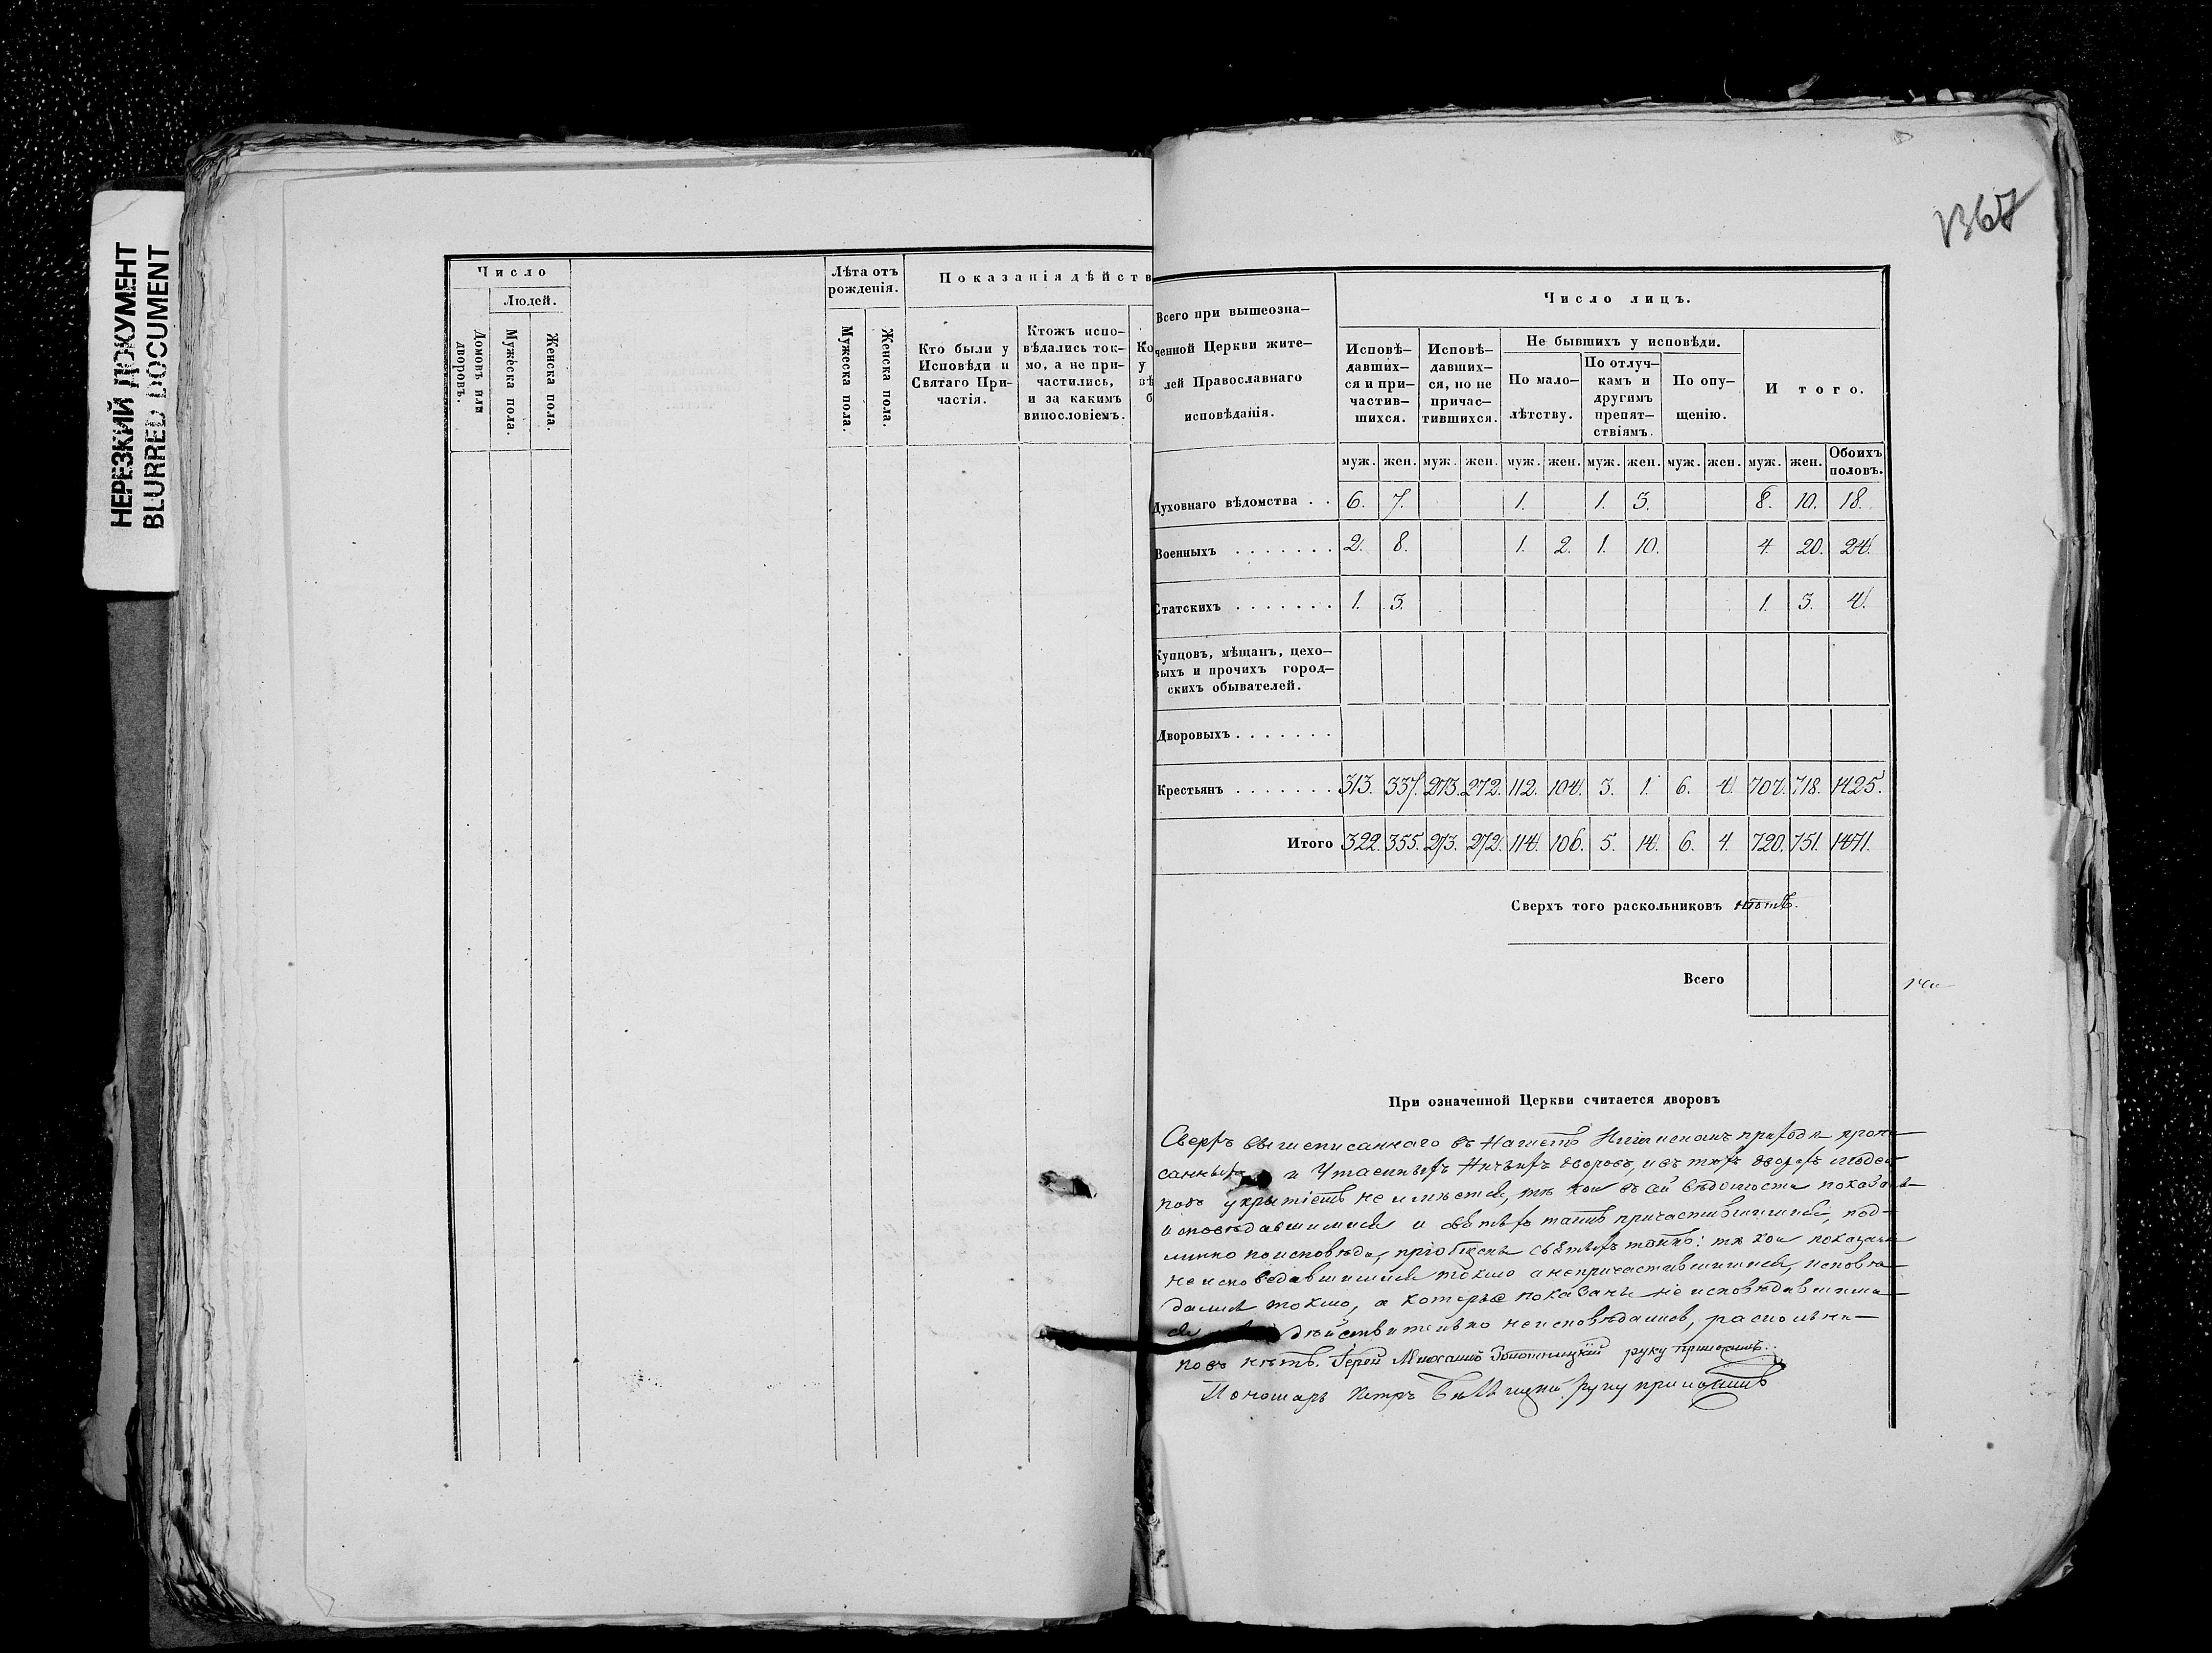 НЕРЕЗКИЙ ДОКУМЕНТ
BLURRED DOCUMENT
Число
Людей.
Домовъ или дворовъ.
Мужеска пола.
Женска пола.
Лѣта отъ рожденія.
Мужеска пола.
Женска пола.
Показанія дѣйств
Кто были у
Исповѣди и
Святаго При-
частія.
Ктожъ испо-
вѣдались ток-
мо, а не при-
частились,
и за какимъ
винословіемъ.
1367
Всего при вышеозна-
ченной Церкви жите-
лей Православнаго
исповѣданія.
Число лицъ.
Исповѣ-
давших-
ся и при-
частив-
шихся.
Исповѣ-
давших-
ся, но не
причас-
тившихся.
Не бывшихъ у исповѣди.
По мало-
лѣтству.
По отлуч-
камъ и
другимъ
препят-
ствіямъ.
По опу-
щенію.
И того.
муж. жен. муж. жен. муж. жен. муж. жен. муж. жен. муж. жен. Обоихъ половъ.
Духовнаго вѣдомства . . 6. 7. 1. 1. 3. 8. 10. 18.
Военныхъ . . . . . . . 2. 8. 1. 2. 1. 10. 4. 20. 24.
Статскихъ . . . . . . . 1. 3. 1. 3. 4.
Купцовъ, мѣщанъ, цехо-
выхъ и прочихъ город-
скихъ обывателей.
Дворовыхъ . . . . . . .
Крестьянъ . . . . . . . 313. 337. 273. 272. 112. 104. 3. 1. 6. 4. 707. 718. 1425.
Итого 322. 355. 273. 272. 114. 106. 5. 14. 6. 4. 720. 751. 1471.
Сверхъ того раскольниковъ нѣтъ.
Всего
При означенной Церкви считается дворовъ
Сверхъ вышеписаннаго въ нашемъ приходѣ пропи-
санныхъ и утаенныхъ ничьихъ дворовъ, и въ тѣхъ дворахъ людей
подъ укрытіемъ не имѣется, тѣ кои въ сей вѣдомости показаны
исповѣдавшимися и святыхъ таинъ причастившимися, под-
линно по исповѣди, пріобщены святыхъ таинъ: тѣ кои показаны
исповедавшимися токмо а непричастившимися, исповѣ-
дались токмо, а которые показаны не исповѣдавшими-
ся дѣйствительно неисповѣдались, раскольни-
ковъ нѣтъ. Іерей Михаилъ руку приложилъ.
Пономарь Петръ руку приложилъ